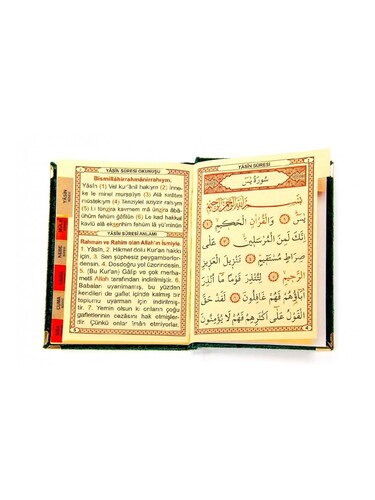 YÂSÎN SÛRESİ OKUNUŞU
Bismillâhirrahmânirrahıym.
Yâsîn (1) Vel kur'ânil hakıym (2) İnne-
ke le minel murseliyn (3) Alâ sırâtim
müstekıym (4) Tenziylel aziyzir rahıym
(5) Li tünzira kavmem mâ ünzira âbâ-
ühüm fehüm ğâfilûn (6) Le kad hakkal
kavlü alâ ekserihim fehüm lâ yü'minûn
YÂSİN SÛRESİ ANLAMI
Rahman ve Rahim olan Allah'ın İsmiyle.
1. Yâsîn. 2. Hikmet dolu Kur'an hakkı
için, 3. Sen şüphesiz peygamberler-
densin. 4. Dosdoğru yol üzerindesin.
5. (Bu Kur'an) Gâlip ve çok merha-
metli Allah tarafından indirilmiştir. 6.
Babaları uyarılmamış, bu yüzden
kendileri de gaflet içinde kalmış bir
toplumu uyarman için indirilmiş-
tir. 7. Yemin olsun ki onların çoğu
gafletlerinin cezasını hak etmişler-
dir. Çünkü onlar îman etmiyorlar.
YÂSÎN
CUMA
YÂSÎN SÛRESİ
سُورَةُ يٰسٓ
بِسْمِ اللّٰهِ الرَّحْمٰنِ الرَّحِيمِ
يٰسٓ ۝ وَالْقُرْاٰنِ الْحَكِيمِ ۝
اِنَّكَ لَمِنَ الْمُرْسَلِينَ ۝ عَلٰى
صِرَاطٍ مُسْتَقِيمٍ ۝ تَنْزِيلَ الْعَزِيزِ
الرَّحِيمِ ۝ لِتُنْذِرَ قَوْمًا مَا اُنْذِرَ
اٰبَاؤُهُمْ فَهُمْ غَافِلُونَ ۝ لَقَدْ حَقَّ
الْقَوْلُ عَلٰى اَكْثَرِهِمْ فَهُمْ لَا يُؤْمِنُونَ